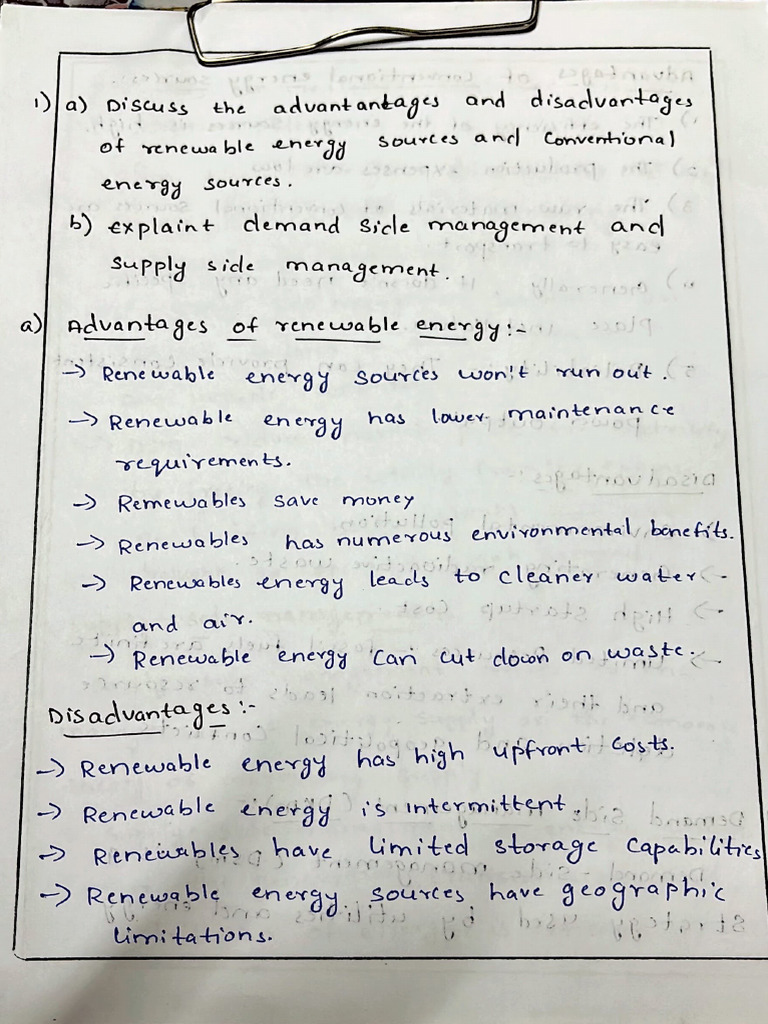 1) a) Discuss the advantantages and disadvantages
of renewable energy sources and Conventional
energy sources.
b) explaint demand side management and
supply side management.
a) Advantages of renewable energy:-
→ Renewable energy sources won't run out.
→ Renewable energy has lower maintenance
requirements.
→ Remewables save money
→ Renewables has numerous environmental benefits.
→ Renewables energy leads to cleaner water
and air.
→ Renewable energy can cut down on waste.
Disadvantages:-
→ Renewable energy has high upfront costs.
→ Renewable energy is intermittent.
→ Renewables have limited storage capabilities
→ Renewable energy sources have geographic
limitations.